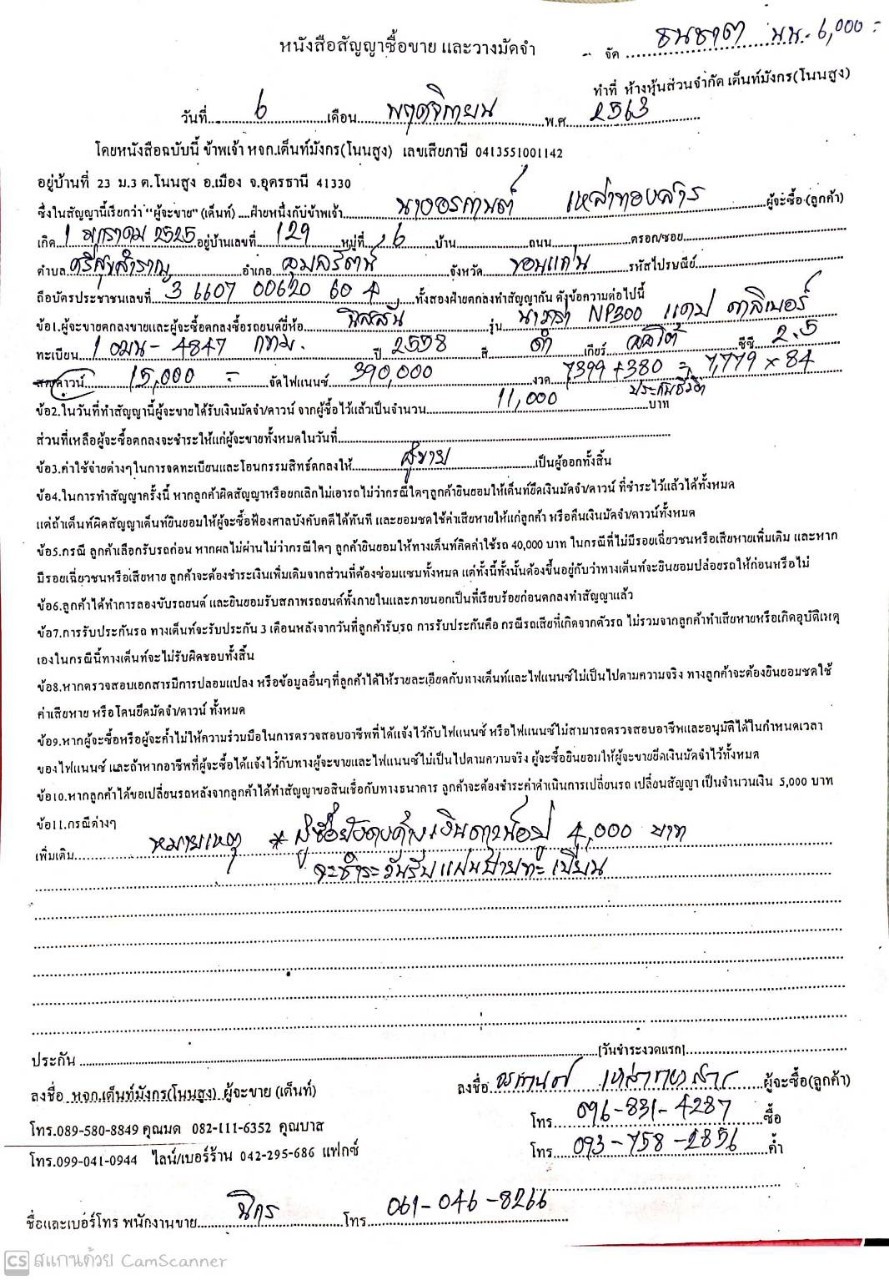 หนังสือสัญญาซื้อขาย และวางมัดจำ
จัด ธนชาต น.น.- 6,000 -
ทำที่ ห้างหุ้นส่วนจำกัด เต็นท์มังกร(โนนสูง)
วันที่ 6 เดือน พฤศจิกายน พ.ศ. 2563
โดยหนังสือฉบับนี้ ข้าพเจ้า หจก.เต็นท์มังกร(โนนสูง) เลขเสียภาษี 0413551001142
อยู่บ้านที่ 23 ม.3 ต.โนนสูง อ.เมือง จ.อุดรธานี 41330
ซึ่งในสัญญานี้เรียกว่า "ผู้จะขาย" (เต็นท์) ....ฝ่ายหนึ่งกับข้าพเจ้า นางอรกานต์ เหล่าทองสาร ผู้จะซื้อ (ลูกค้า)
เกิด 1 มกราคม 2525 อยู่บ้านเลขที่ 129 หมู่ที่ 6 บ้าน ถนน ตรอก/ซอย
ตำบล ศรีสุขสำราญ อำเภอ อุบลรัตน์ จังหวัด ขอนแก่น รหัสไปรษณีย์
ถือบัตรประชาชนเลขที่ 3 6607 00620 60 4 ทั้งสองฝ่ายตกลงทำสัญญากัน ดังข้อความต่อไปนี้
ข้อ1.ผู้จะขายตกลงขายและผู้จะซื้อตกลงซื้อรถยนต์ยี่ห้อ นิสสัน รุ่น นาวาร่า NP300 แคป คาลิเบอร์
ทะเบียน 1 ฒน- 4847 กทม. ปี 2558 สี ดำ เกียร์ ออโต้ ซีซี 2.5
สด/ดาวน์ 15,000 - จัดไฟแนนซ์ 390,000 งวด 7399 + 380 = 7,779 × 84
ประกันชีวิต
ข้อ2.ในวันที่ทำสัญญานี้ผู้จะขายได้รับเงินมัดจำ/ดาวน์ จากผู้ซื้อไว้แล้วเป็นจำนวน 11,000 บาท
ส่วนที่เหลือผู้จะซื้อตกลงจะชำระให้แก่ผู้จะขายทั้งหมดในวันที่
ข้อ3.ค่าใช้จ่ายต่างๆในการจดทะเบียนและโอนกรรมสิทธิ์ตกลงให้ ผู้ขาย เป็นผู้ออกทั้งสิ้น
ข้อ4.ในการทำสัญญาครั้งนี้ หากลูกค้าผิดสัญญาหรือยกเลิกไม่เอารถไม่ว่ากรณีใดๆลูกค้ายินยอมให้เต็นท์ยึดเงินมัดจำ/ดาวน์ ที่ชำระไว้แล้วได้ทั้งหมด
แต่ถ้าเต็นท์ผิดสัญญาเต็นท์ยินยอมให้ผู้จะซื้อฟ้องศาลบังคับคดีได้ทันที และยอมชดใช้ค่าเสียหายให้แก่ลูกค้า หรือคืนเงินมัดจำ/ดาวน์ทั้งหมด
ข้อ5.กรณี ลูกค้าเลือกรับรถก่อน หากผลไม่ผ่านไม่ว่ากรณีใดๆ ลูกค้ายินยอมให้ทางเต็นท์คิดค่าใช้รถ 40,000 บาท ในกรณีที่ไม่มีรอยเฉี่ยวชนหรือเสียหายเพิ่มเติม และหาก
มีรอยเฉี่ยวชนหรือเสียหาย ลูกค้าจะต้องชำระเงินเพิ่มเติมจากส่วนที่ต้องซ่อมแซมทั้งหมด แต่ทั้งนี้ทั้งนั้นต้องขึ้นอยู่กับว่าทางเต็นท์จะยินยอมปล่อยรถให้ก่อนหรือไม่
ข้อ6.ลูกค้าได้ทำการลองขับรถยนต์ และยินยอมรับสภาพรถยนต์ทั้งภายในและภายนอกเป็นที่เรียบร้อยก่อนตกลงทำสัญญาแล้ว
ข้อ7.การรับประกันรถ ทางเต็นท์จะรับประกัน 3 เดือนหลังจากวันที่ลูกค้ารับรถ การรับประกันคือ กรณีรถเสียที่เกิดจากตัวรถ ไม่รวมจากลูกค้าทำเสียหายหรือเกิดอุบัติเหตุ
เองในกรณีนี้ทางเต็นท์จะไม่รับผิดชอบทั้งสิ้น
ข้อ8.หากตรวจสอบเอกสารมีการปลอมแปลง หรือข้อมูลอื่นๆที่ลูกค้าได้ให้รายละเอียดกับทางเต็นท์และไฟแนนซ์ไม่เป็นไปตามความจริง ทางลูกค้าจะต้องยินยอมชดใช้
ค่าเสียหาย หรือโดนยึดมัดจำ/ดาวน์ ทั้งหมด
ข้อ9.หากผู้จะซื้อหรือผู้จะค้ำไม่ให้ความร่วมมือในการตรวจสอบอาชีพที่ได้แจ้งไว้กับไฟแนนซ์ หรือไฟแนนซ์ไม่สามารถตรวจสอบอาชีพและอนุมัติได้ในกำหนดเวลา
ของไฟแนนซ์ และถ้าหากอาชีพที่ผู้จะซื้อได้แจ้งไว้กับทางผู้จะขายและไฟแนนซ์ไม่เป็นไปตามความจริง ผู้จะซื้อยินยอมให้ผู้จะขายยึดเงินมัดจำไว้ทั้งหมด
ข้อ10.หากลูกค้าได้ขอเปลี่ยนรถหลังจากลูกค้าได้ทำสัญญาขอสินเชื่อกับทางธนาคาร ลูกค้าจะต้องชำระค่าดำเนินการเปลี่ยนรถ เปลี่ยนสัญญา เป็นจำนวนเงิน 5,000 บาท
ข้อ11.กรณีต่างๆ
เพิ่มเติม หมายเหตุ * ผู้ซื้อยังคงค้างเงินดาวน์อยู่ 4,000 บาท
จะชำระวันรับแผ่นป้ายทะเบียน
ประกัน [วันชำระงวดแรก]
ลงชื่อ หจก.เต็นท์มังกร(โนนสูง) ผู้จะขาย (เต็นท์) ลงชื่อ อรกานต์ เหล่าทองสาร ผู้จะซื้อ(ลูกค้า)
โทร.089-580-8849 คุณมด 082-111-6352 คุณบาส โทร 096-831-4287 ซื้อ
โทร.099-041-0944 ไลน์/เบอร์ร้าน 042-295-686 แฟกซ์ โทร 093-758-2856 ค้ำ
ชื่อและเบอร์โทร พนักงานขาย นิกร โทร 061-046-8266
CS สแกนด้วย CamScanner